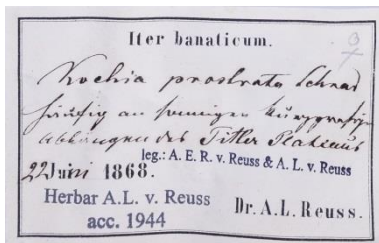 Iter banaticum.
Kochia prostrata Schrad
häufig an sonnigen kurzgrasigen
Abhängen des Titler Plateaus
leg.: A. E. R. v. Reuss & A. L. v. Reuss
22 Juni 1868.
Herbar A.L. v. Reuss
acc. 1944
Dr. A. L. Reuss.